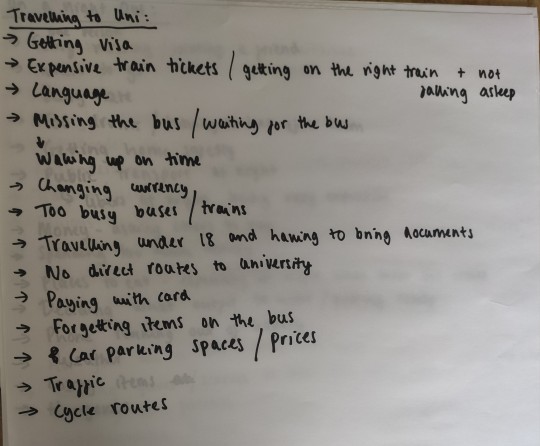 Travelling to Uni:
→ Getting Visa
→ Expensive train tickets / getting on the right train + not
falling asleep
→ Language
→ Missing the bus / waiting for the bus
↓
Waking up on time
→ Changing currency
→ Too busy buses / trains
→ Travelling under 18 and having to bring documents
→ No direct routes to university
→ Paying with card
→ Forgetting items on the bus
→ Car parking spaces / prices
→ Traffic
→ Cycle routes